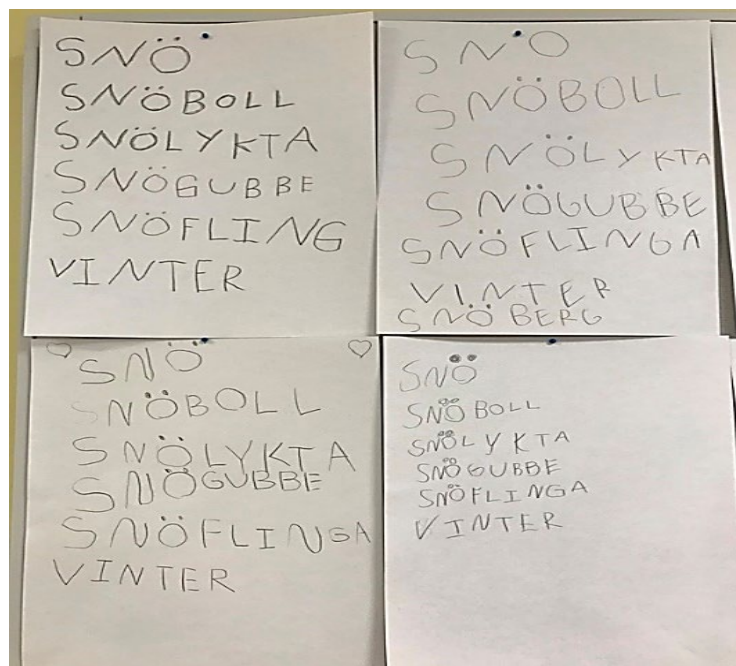 SNÖ
SNÖBOLL
SNÖLYKTA
SNÖGUBBE
SNÖFLING
VINTER
SNO
SNÖBOLL
SNÖLYKTA
SNÖGUBBE
SNÖFLINGA
VINTER
SNÖBERG
SNÖ
SNÖBOLL
SNÖLYKTA
SNÖGUBBE
SNÖFLINGA
VINTER
SNÖ
SNÖBOLL
SNÖLYKTA
SNÖGUBBE
SNÖFLINGA
VINTER